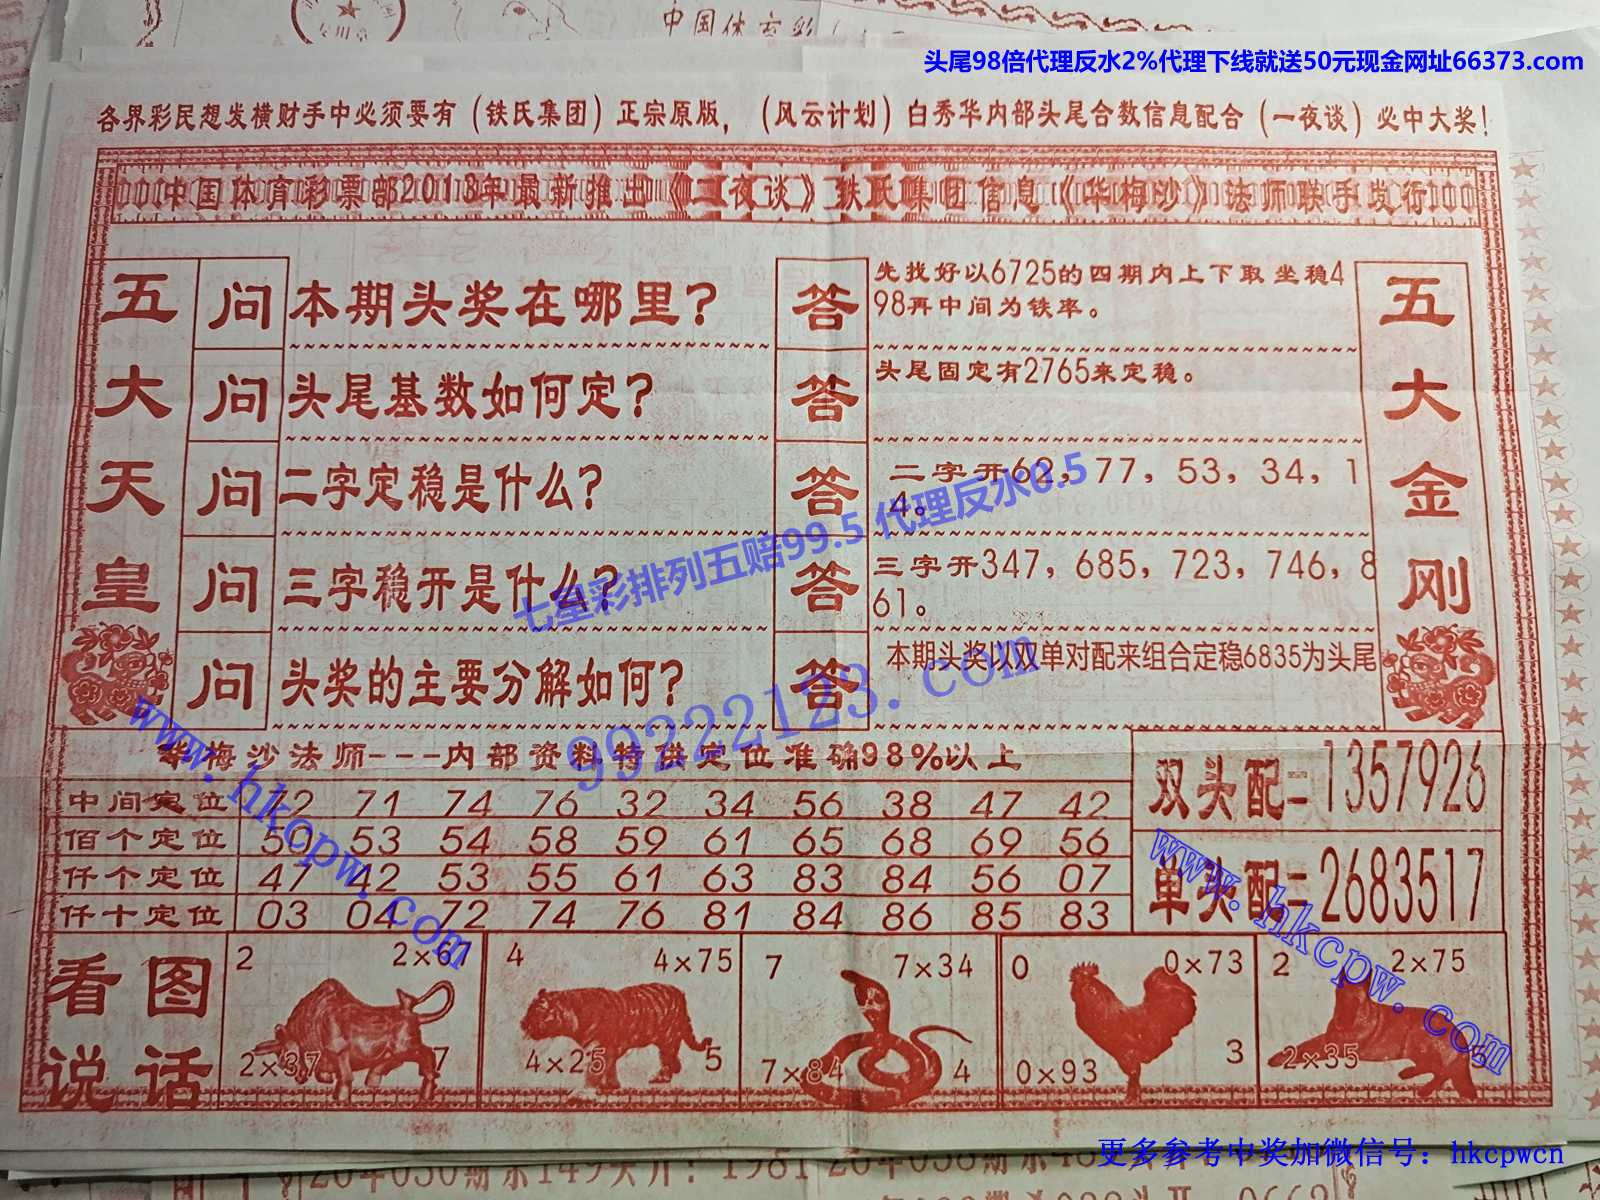 中国体育彩
头尾98倍代理反水2%代理下线就送50元现金网址66373.com
各界彩民想发横财手中必须要有（铁氏集团）正宗原版，（风云计划）白秀华内部头尾合数信息配合（一夜谈）必中大奖！
中国体育彩票部2013年最新推出《一夜谈》铁氏集团信息《华梅沙》法师联手发行
五大天皇
问 本期头奖在哪里？
答 先找好以6725的四期内上下取坐稳4
98再中间为铁率。
问 头尾基数如何定？
答 头尾固定有2765来定稳。
问 二字定稳是什么？
答 二字开62，77，53，34，1
4。
问 三字稳开是什么？
答 三字开347，685，723，746，8
61。
问 头奖的主要分解如何？
答 本期头奖以双单对配来组合定稳6835为头尾
五大金刚
七星彩排列五赔99.5 代理反水0.5
99222123.com
www.hkcpw.com
www.hkcpw.com
华梅沙法师---内部资料特供定位准确98%以上
中间定位 72 71 74 76 32 34 56 38 47 42
佰个定位 50 53 54 58 59 61 65 68 69 56
仟个定位 47 42 53 55 61 63 83 84 56 07
仟十定位 03 04 72 74 76 81 84 86 85 83
双头配=1357926
单头配=2683517
看图
说话
2 2×67
2×37 7
4 4×75
4×25 5
7 7×34
7×84 4
0 0×73
0×93 3
2 2×75
2×35 5
更多参考中奖加微信号：hkcpwcn